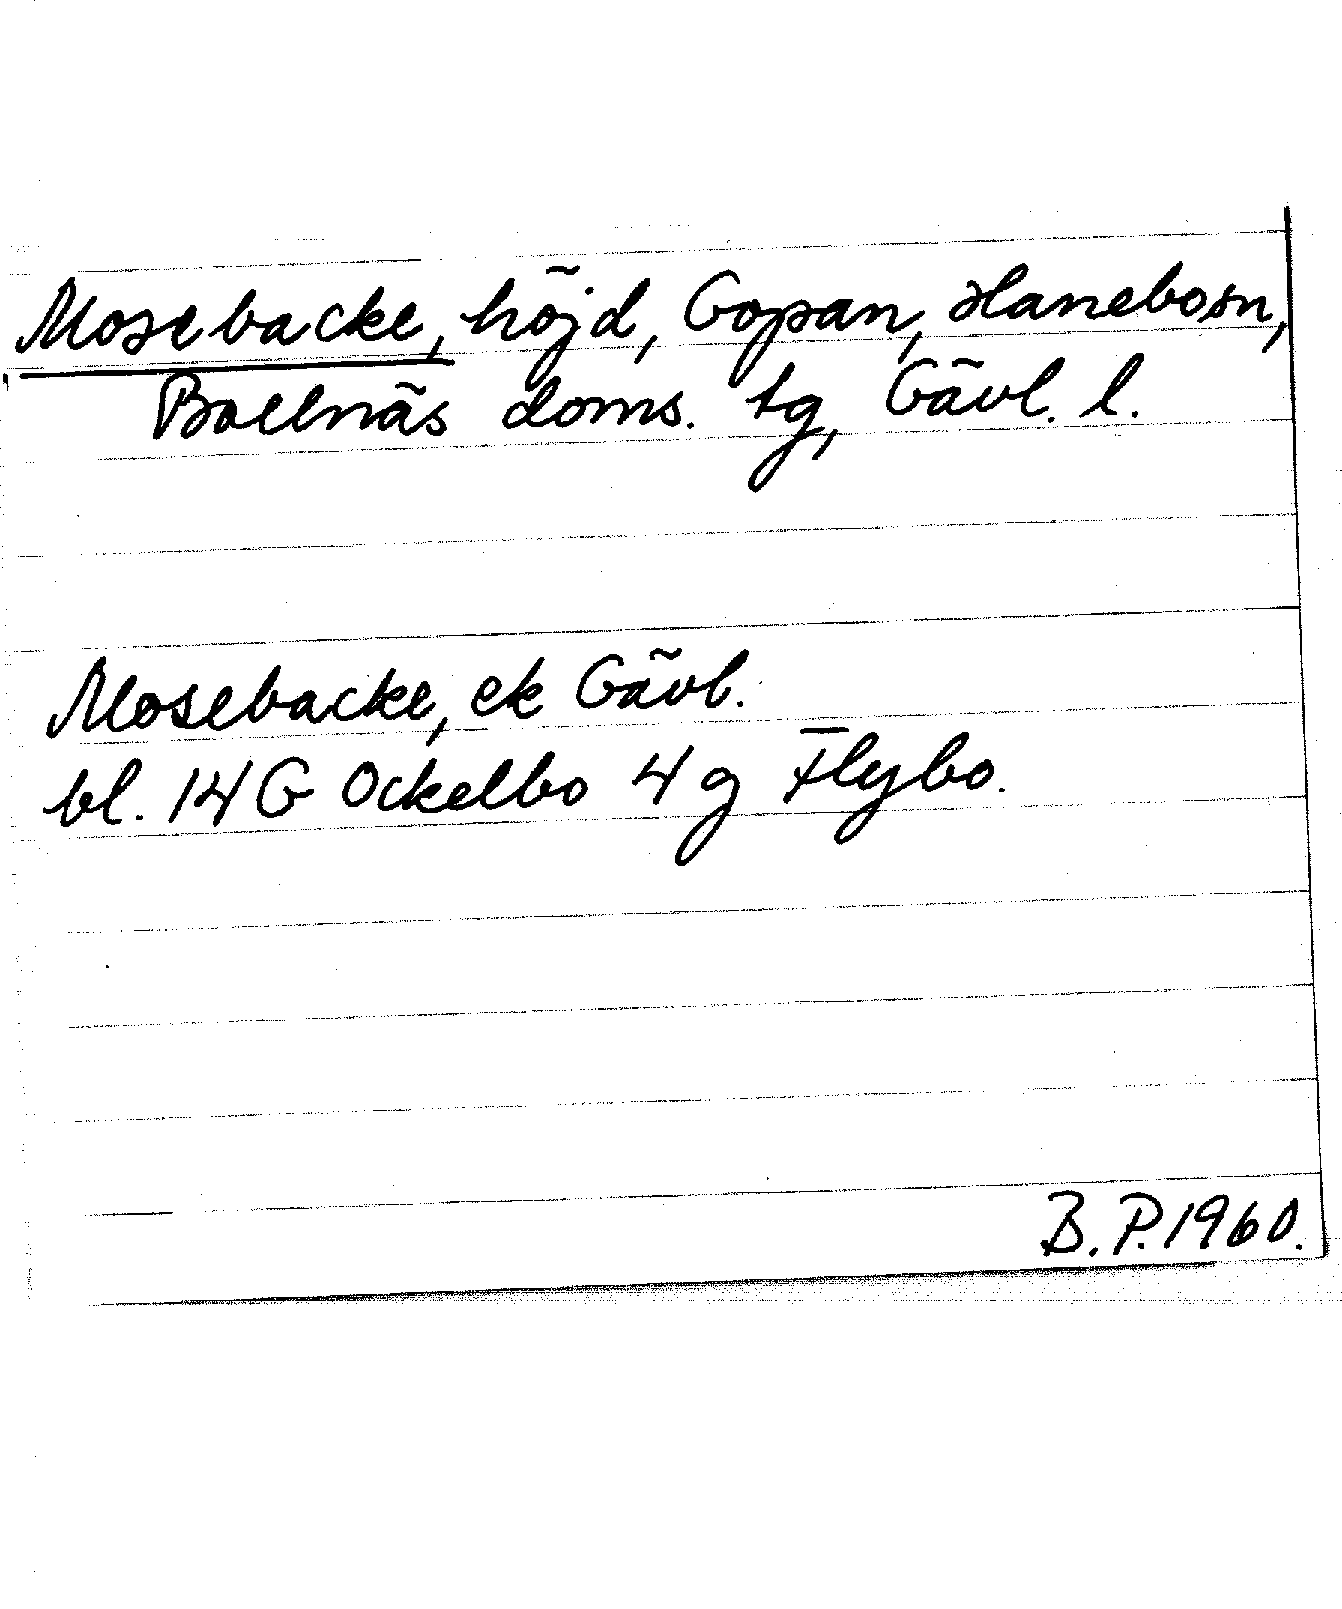 Mosebacke, höjd, Gopan, Hanebosn,
Bollnäs doms. tg, Gävl. l.
Mosebacke, ek Gävl.
bl. 14 G Ockelbo 4 g Flybo.
B. P. 1960.